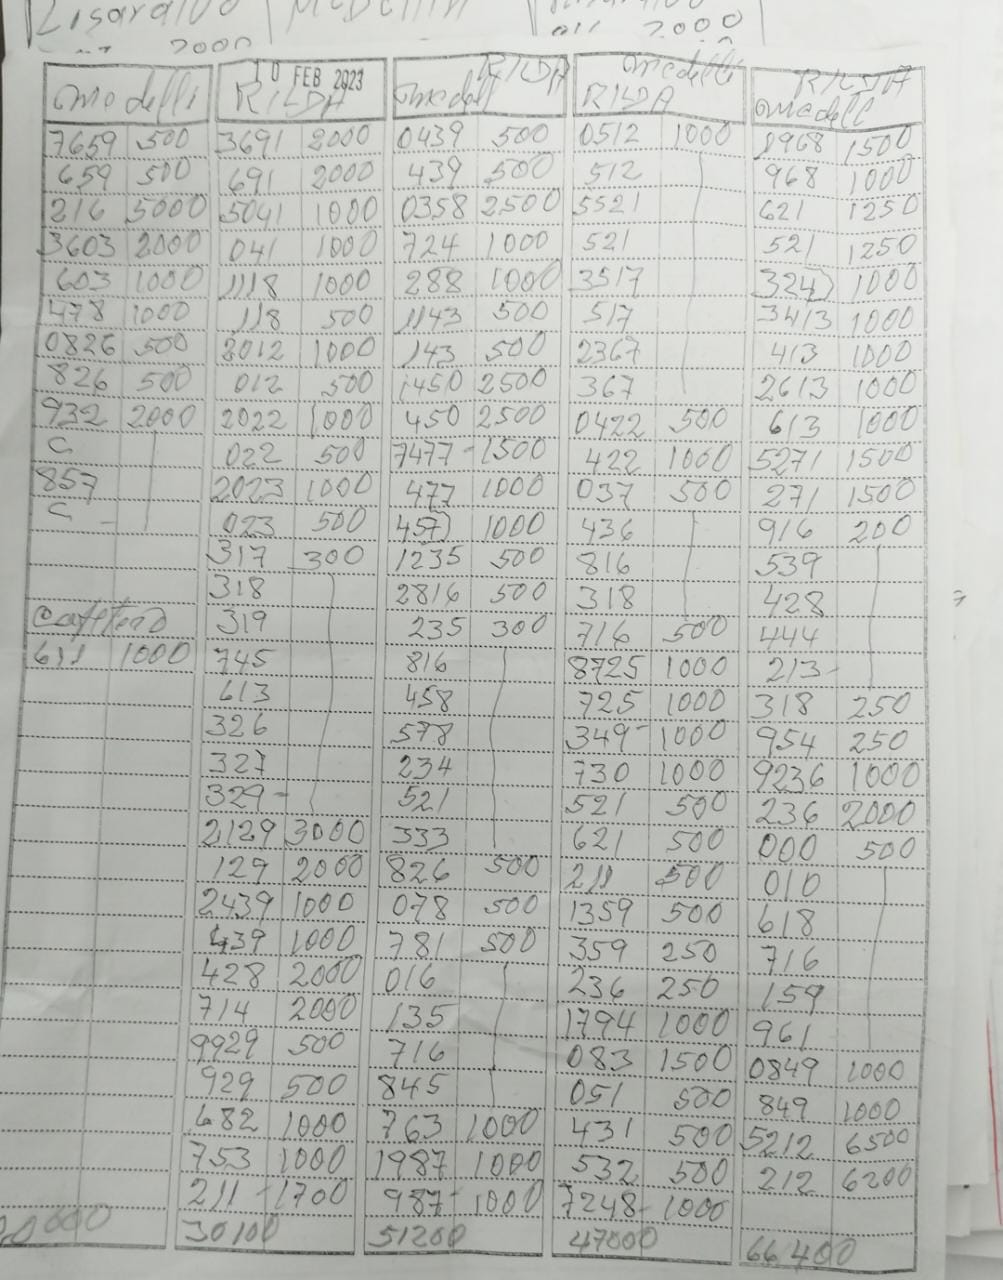 Lisaraldo Medellin
2000 2000
10 FEB 2023
Medelli RILDA Medell RILDA Medelli RILDA RILDA Medell
7659 500 3691 2000 0439 500 0512 1000 0968 1500
659 500 691 2000 439 500 512 968 1000
216 5000 5041 1000 0358 2500 5521 621 1250
3603 2000 041 1000 724 1000 521 521 1250
603 1000 1118 1000 288 1000 3517 324 1000
478 1000 118 500 1143 500 517 3413 1000
0826 500 2012 1000 143 500 2367 413 1000
826 500 012 500 1450 2500 367 2613 1000
932 2000 2022 1000 450 2500 0422 500 613 1000
C 022 500 7477 - 1500 422 1000 5271 1500
857 2023 1000 477 1000 037 500 271 1500
C - 023 500 457 1000 436 916 200
317 300 1235 500 816 539
318 2816 500 318 428
319 235 300 716 500 444
611 1000 745 816 8725 1000 213 -
613 458 725 1000 318 250
326 578 349 - 1000 954 250
327 234 730 1000 9236 1000
329 - 521 521 500 236 2000
2129 3000 333 621 500 000 500
129 2000 826 500 211 500 010
2439 1000 078 500 1359 500 618
439 1000 781 500 359 250 716
428 2000 016 236 250 159
714 2000 135 1794 1000 961
9929 500 716 083 1500 0849 1000
929 500 845 051 500 849 1000
682 1000 763 1000 431 500 5212 6500
753 1000 1987 1000 532 500 212 6200
211 - 1700 987 - 1000 7248 - 1000
30100 51200 47000 66400